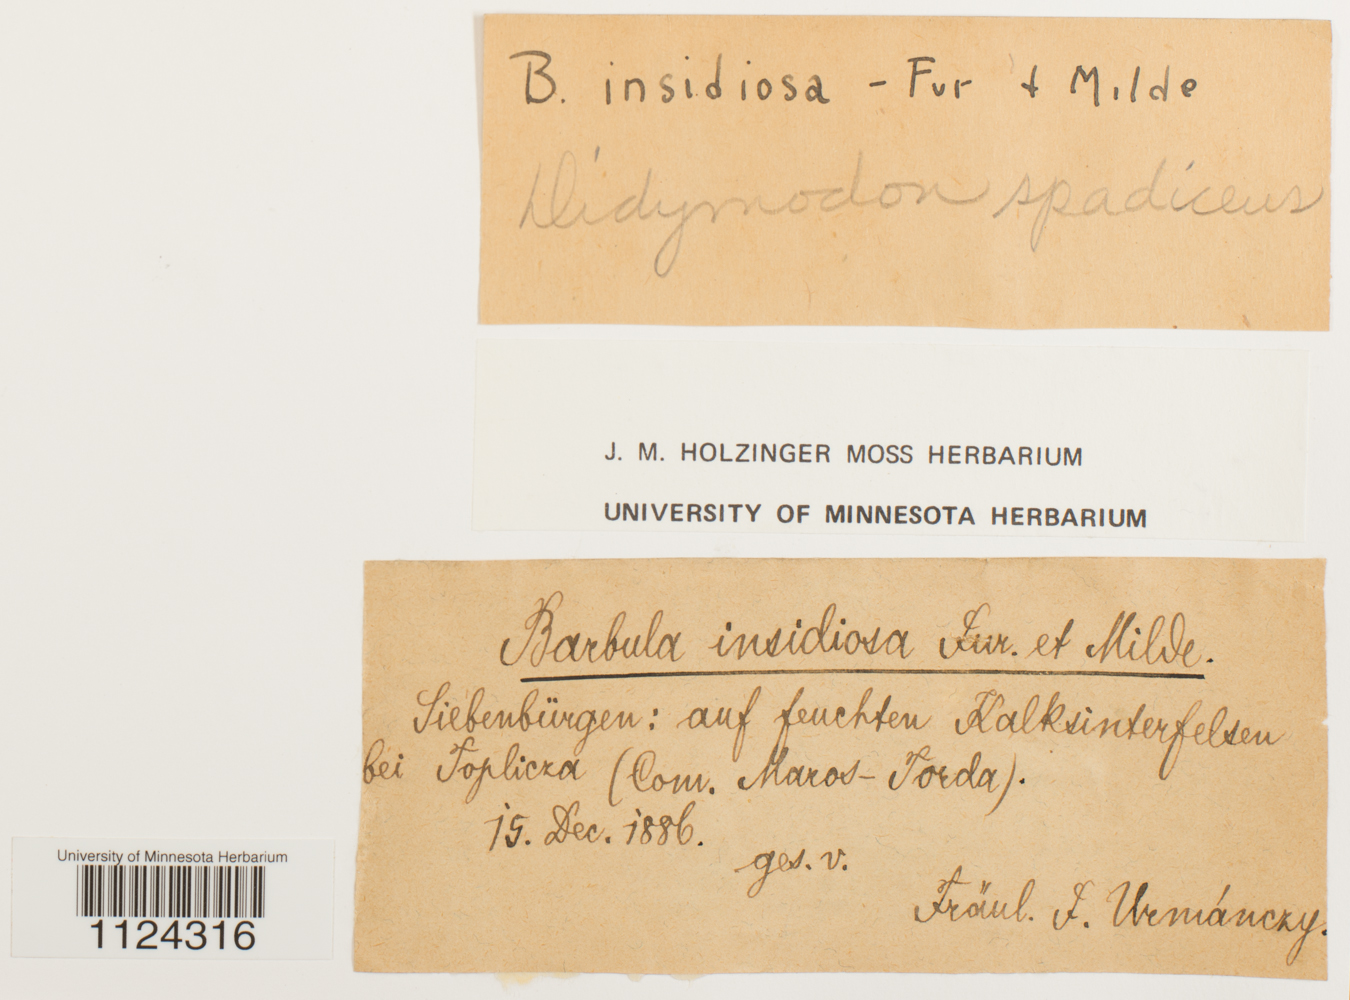 B. insidiosa - Fur + Milde
Didymodon spadiceus
J. M. HOLZINGER MOSS HERBARIUM
UNIVERSITY OF MINNESOTA HERBARIUM
Barbula insidiosa Fur. et Milde.
Siebenbürgen: auf feuchten Kalksinterfelsen
bei Toplicza (Com. Maros-Torda).
15. Dec. 1886.
ges. v.
Fräul. F. Urmánczy.
University of Minnesota Herbarium
1124316